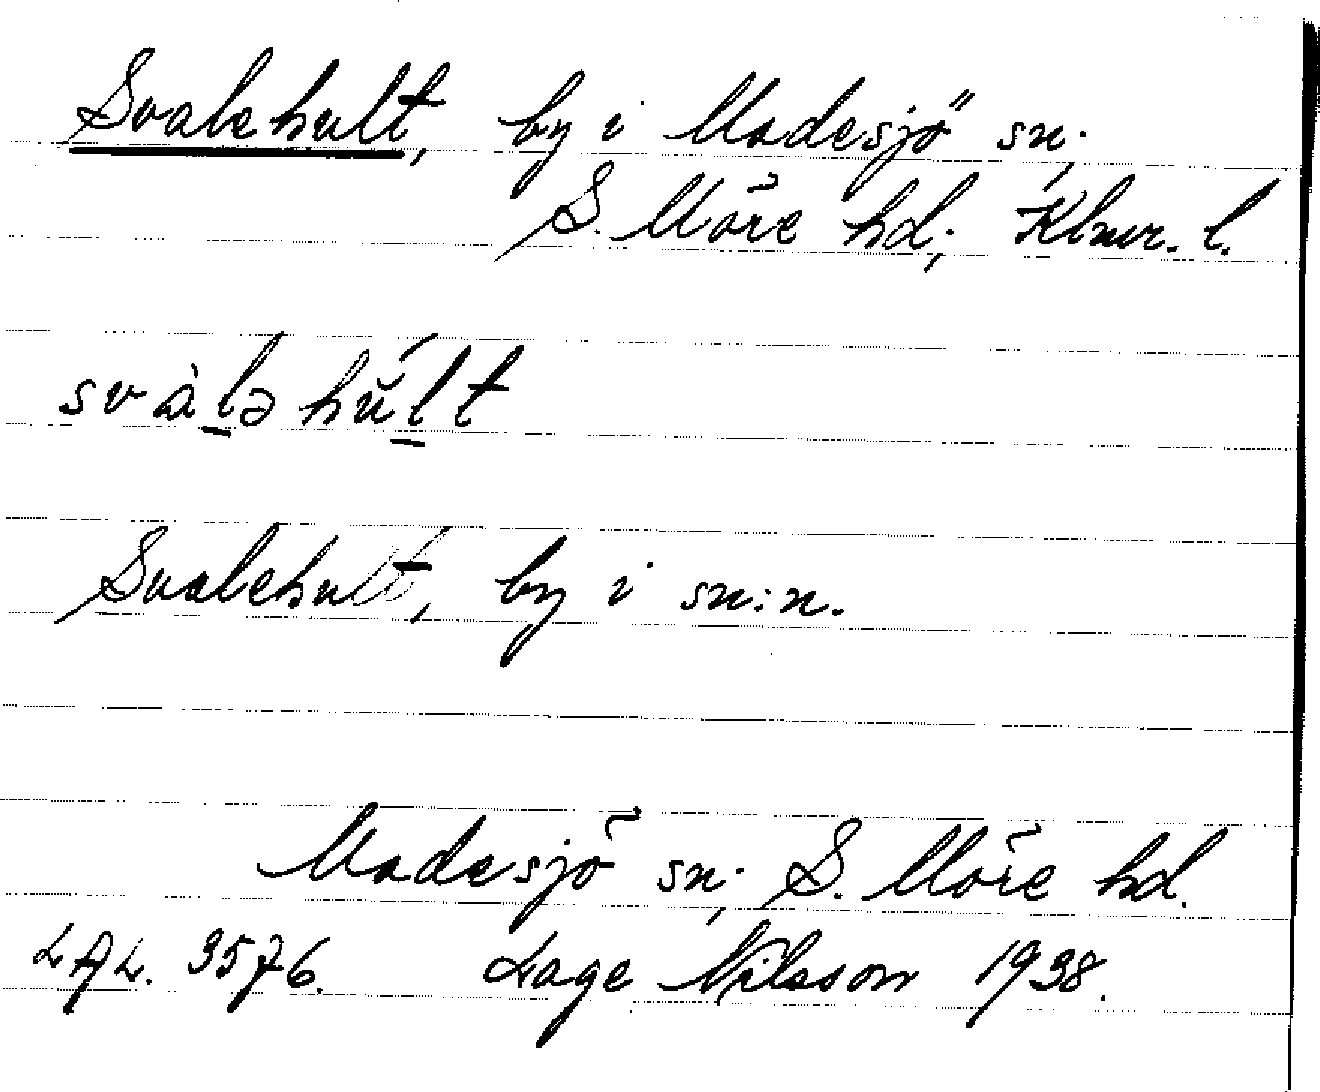 Svalehult, by i Madesjö sn,
S. Möre hd, Klmr. l.
svàl̠ə hŭ́l̠t
Svalehult, by i sn:n.
Madesjö sn, S. Möre hd.
LAL. 3576. Lage Nilsson 1938.